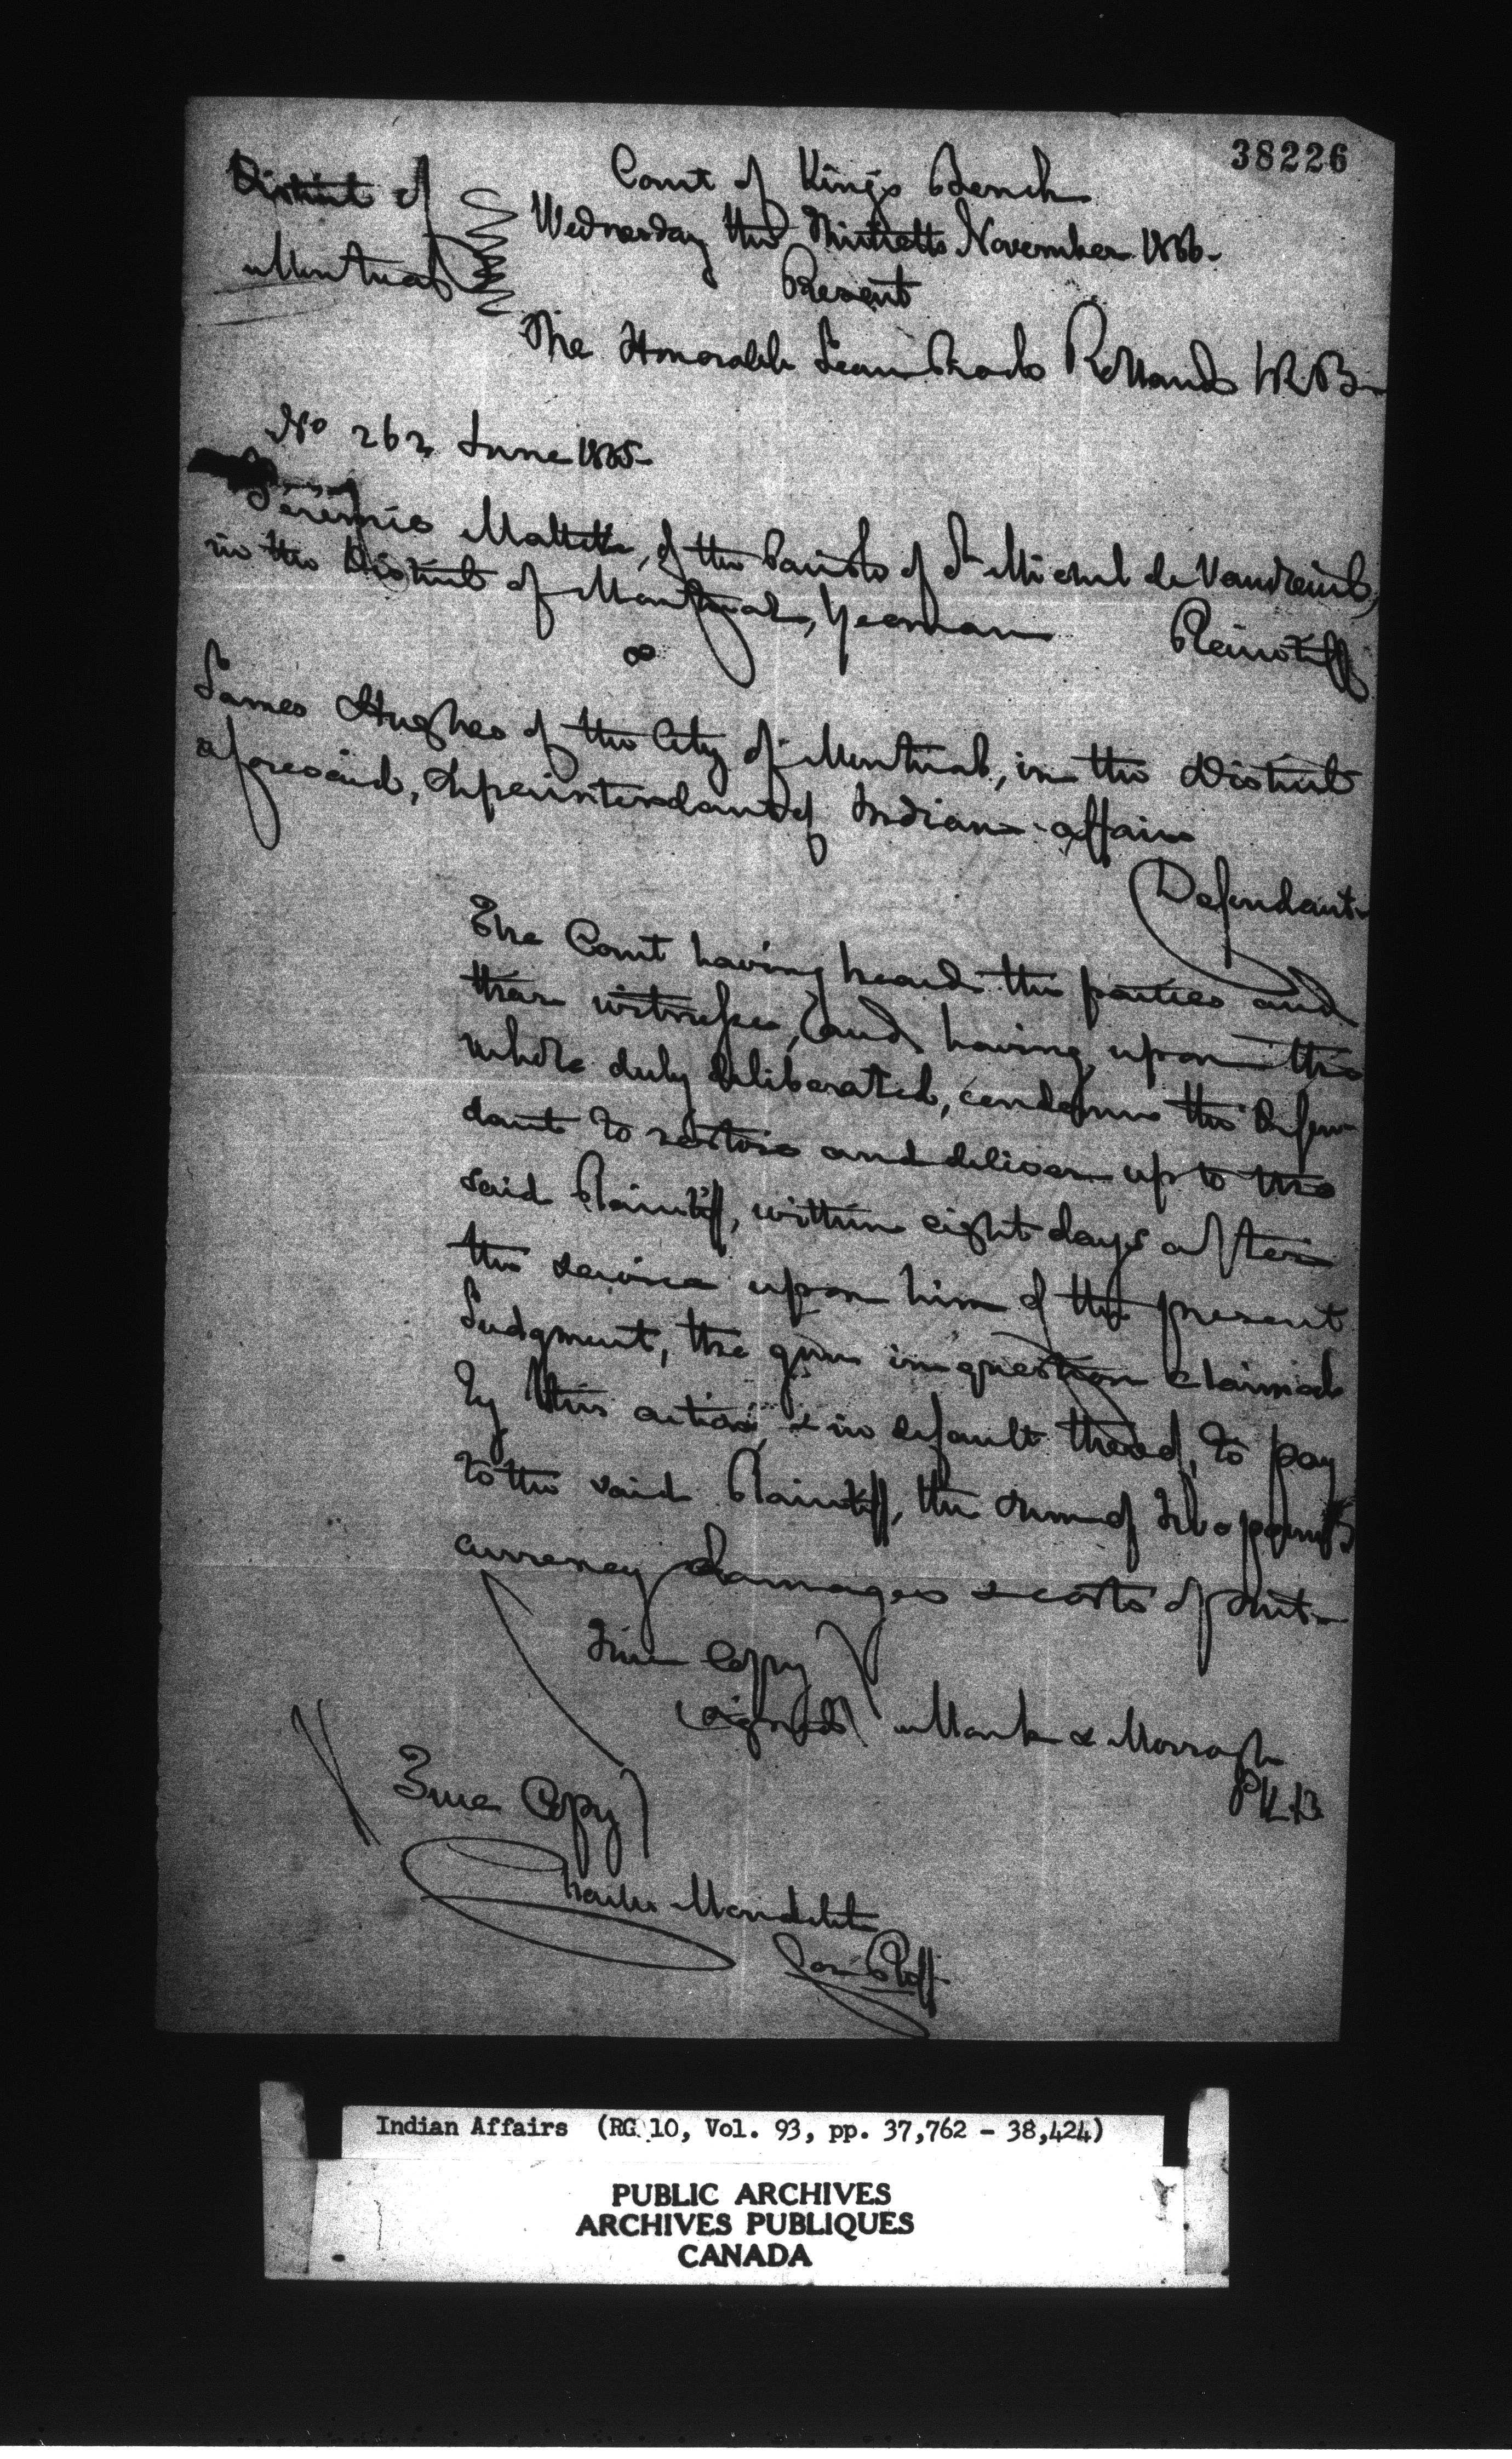 38226
District of
Montreal
Court of Kings Bench
Wednesday the Thirtieth November 1836.
Present
The Honorable Jean Roch Rolland
No 262 June 1835.
Jérémie Mallette, of the Parish of St Michel de Vaudreuil,
in the District of Montreal, Yeoman Plaintiff
vs
James Hughes of the City of Montreal, in the District
aforesaid, Superintendant of Indian affairs
Defendant.
The Court having heard the parties and
their witnesses, and having upon the
whole duly deliberated, condemns the Defen-
dant to restore and deliver up to the
said Plaintiff, within eight days after
the service upon him of the present
Judgment, the gun in question claimed
by this action, & in default thereof, to pay
to the said Plaintiff, the sum of two pounds
currency damages & costs of suit.
True Copy
(Signed) Monk & Morrogh
P.K.B
True Copy
Charles Mondelet
for Pltff
Indian Affairs (RG 10, Vol. 93, pp. 37,762 - 38,424)
PUBLIC ARCHIVES
ARCHIVES PUBLIQUES
CANADA